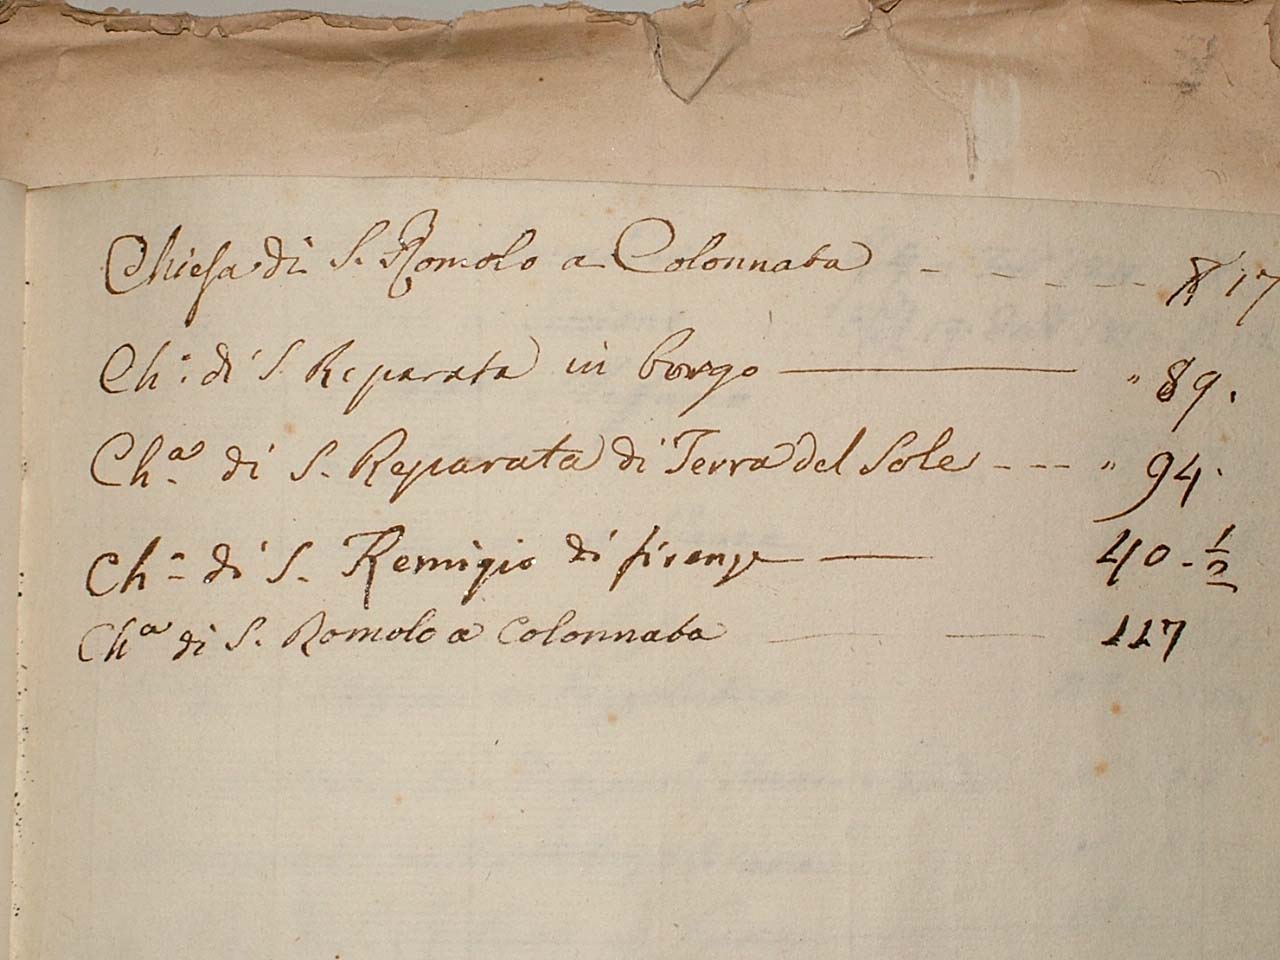 Chiesa di S. Romolo a Colonnata - - - - - - 117
Ch.ª di S. Reparata in borgo — " 89.
Ch.ª di S. Reparata di Terra del Sole - - - " 94.
Ch.ª di S. Remigio di firenze — 40 - 1/2
Ch.ª di S. Romolo a Colonnata — — 117